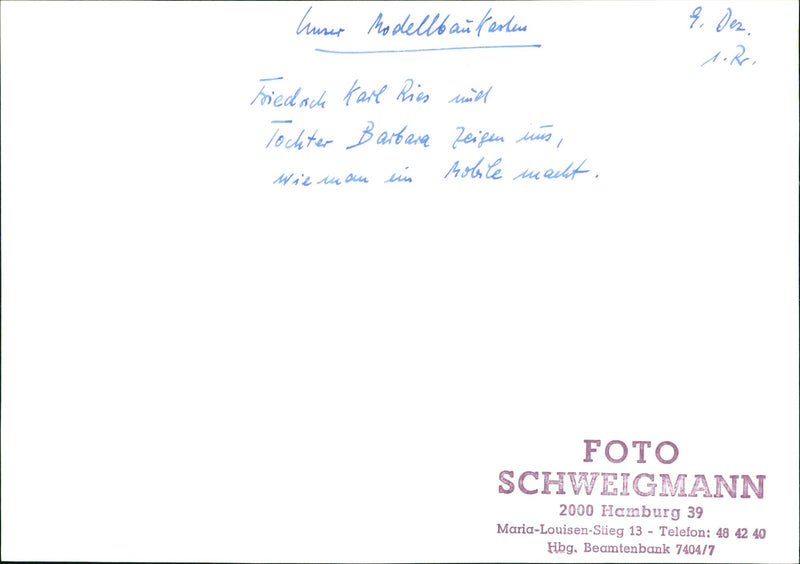 Unser Modellbaukasten
9. Dez.
1. Pr.
Friedrich Karl Ries und
Tochter Barbara zeigen uns,
wie man ein Mobile macht.
FOTO
SCHWEIGMANN
2000 Hamburg 39
Maria-Louisen-Stieg 13 - Telefon: 48 42 40
Hbg. Beamtenbank 7404/7